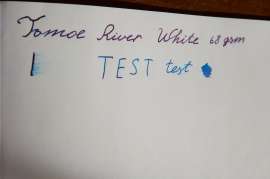 Tomoe River White 68 gsm
TEST test